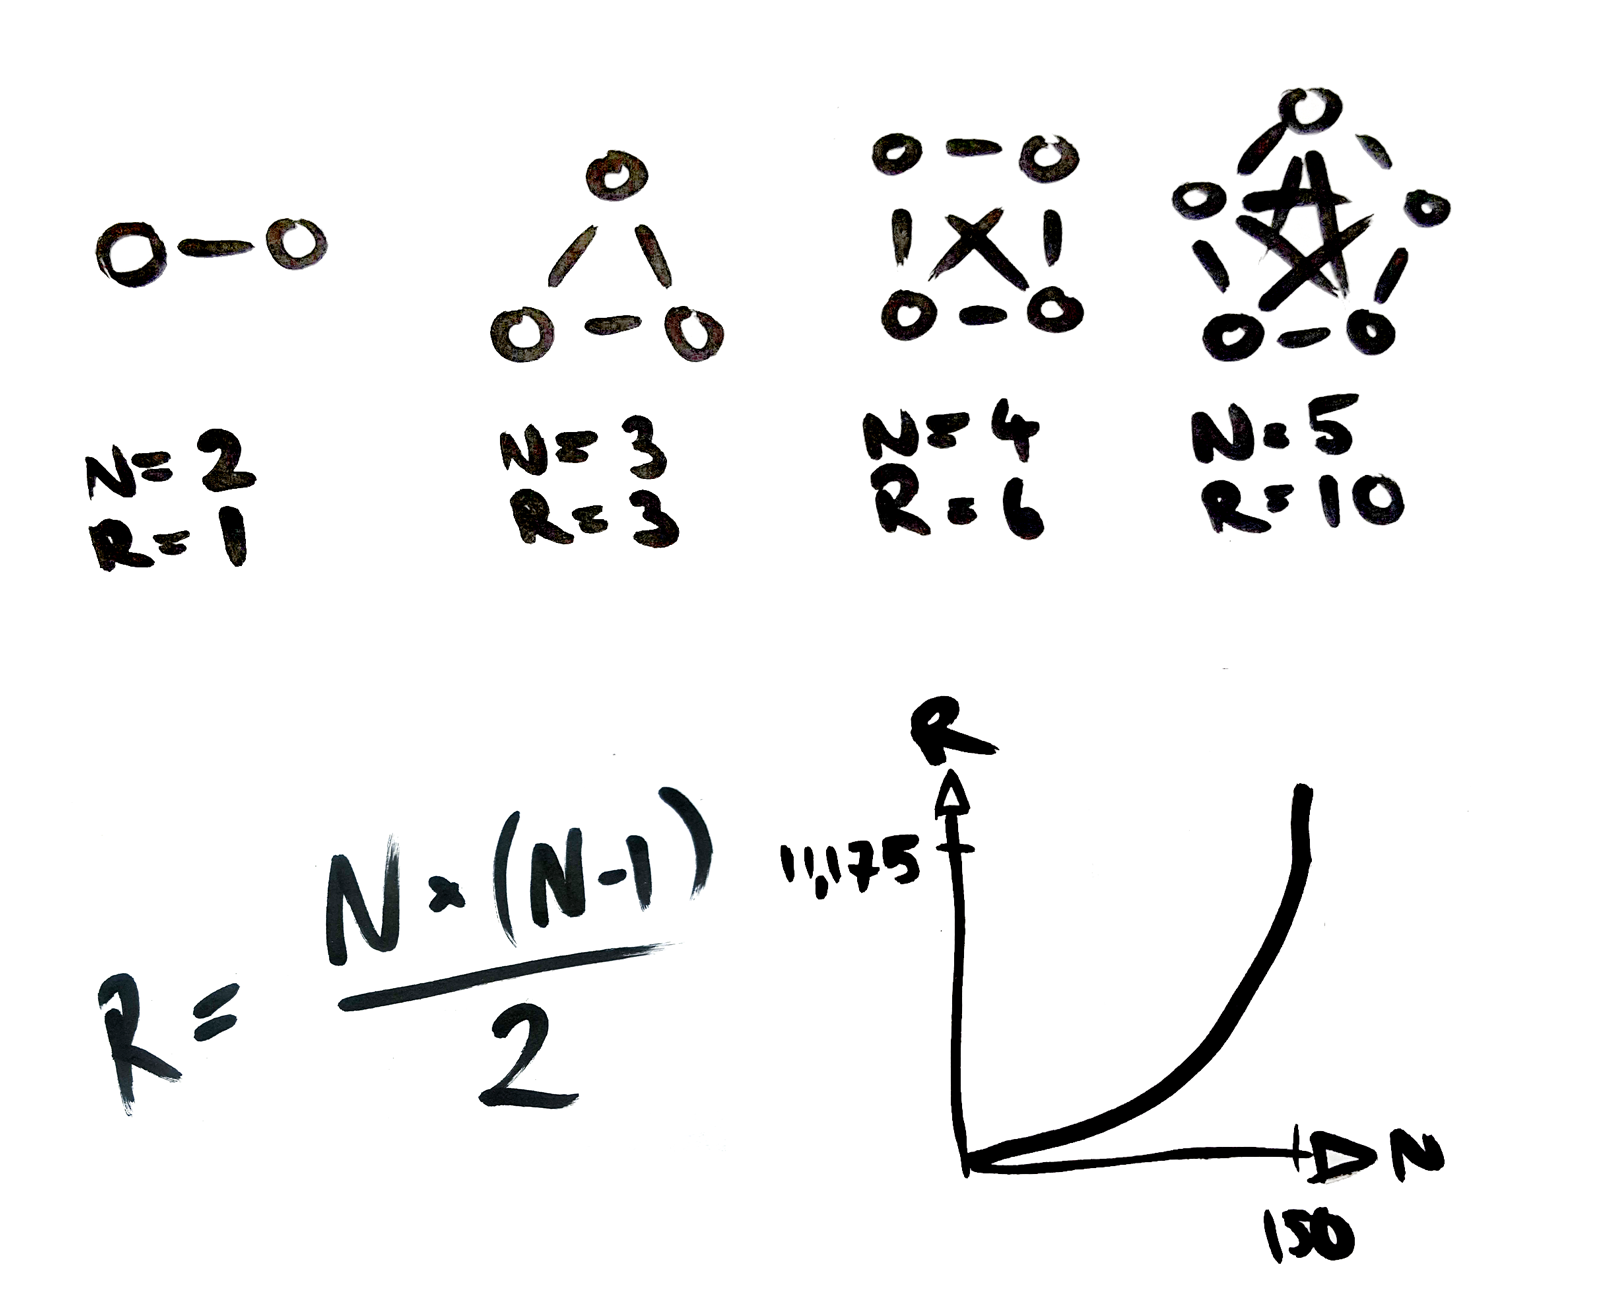 N=2
R=1
N=3
R=3
N=4
R=6
N=5
R=10
R = N×(N-1)
2
R
11,175
N
150